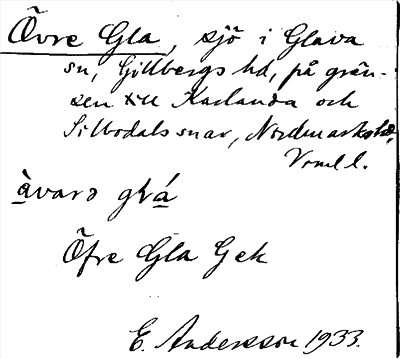 Övre Gla, sjö i Glava
sn, Gillbergs hd, på grän-
sen till Karlanda och
Silbodals snar, Nordmarks hd,
Vrml l.
àvarə glá
Öfre Gla Gek
E. Andersson 1933.